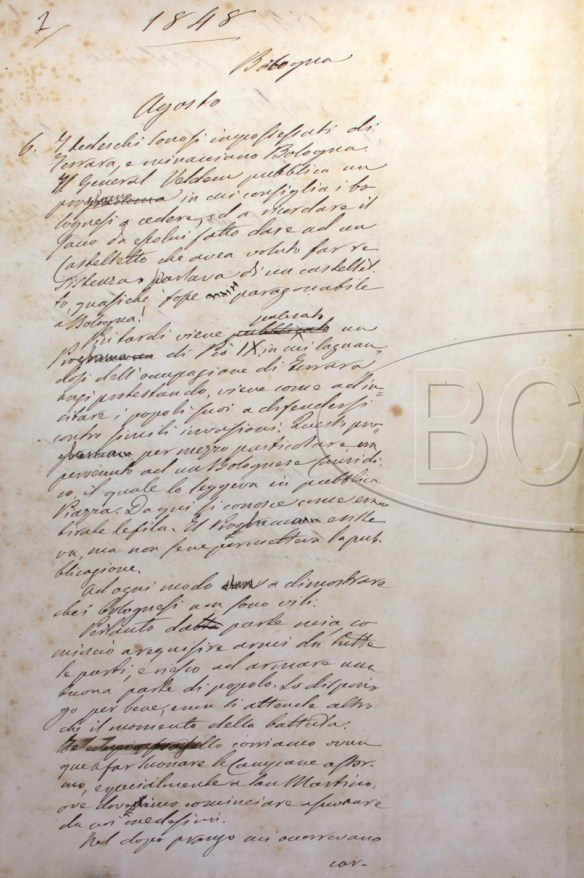 1
1848
Bologna
Agosto
6. I tedeschi sonosi impossessati di
Ferrara, e minacciano Bologna.
Il General Veldem pubblica un
in cui consiglia i bo-
lognesi a cedere, ed a ricordare il
fatto dare ad un
Casteletto che avea voluto far re
sistenza, parlava di un castellet-
to, quasiche, fosse paragonabile
a Bologna!
Più tardi viene pubblicato un
di Pio IX, in cui lagnan
dosi dell'occupazione di Ferrara
anzi protestando, viene come ad in=
citare i popoli suoi a difendersi
contro simili invasioni. Questo pro=
per mezzo particolare era
pervenuto ad un Bolognese
co, il quale lo leggeva in pubblica
Piazza. Da qui si conosce come era
tirale le fila. Il esiste
va, ma non se ne permetteva la pub-
blicazione.
Ad ogni modo a dimostrare
che i bolognesi non sono vili.
Pertanto da parte mia, co
mincio a requisire armi da tutte
le parti, e riesco ad armare una
buona parte di popolo. Lo dispon-
go per bene, e non si attende altro
che il momento della battuta.
corriamo ovun
que a far suonare le Campane a stor-
mo, e specialmente a San Martino,
ove cominciare a suonare
da noi medesimi.
Nel dopo pranzo mi occorrevano
car-
BC